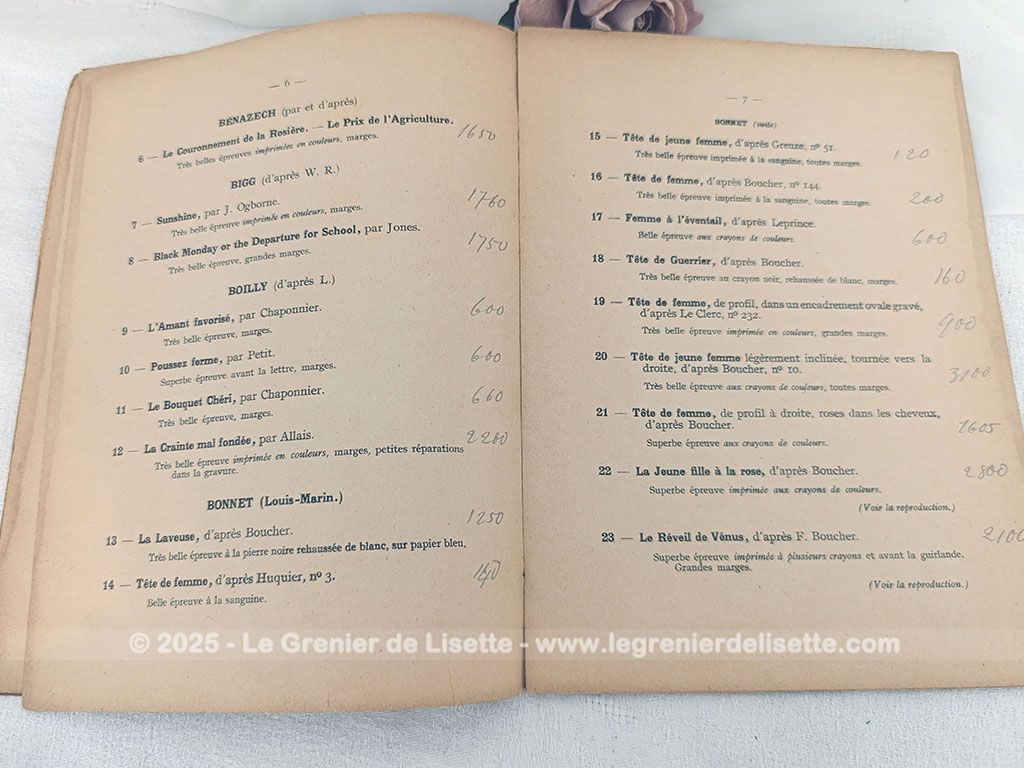 — 6 —
BÉNAZECH (par et d'après)
6 — Le Couronnement de la Rosière. — Le Prix de l'Agriculture. 1650
Très belles épreuves imprimées en couleurs, marges.
BIGG (d'après W. R.)
7 — Sunshine, par J. Ogborne. 1760
Très belle épreuve imprimée en couleurs, marges.
8 — Black Monday or the Departure for School, par Jones. 1750
Très belle épreuve, grandes marges.
BOILLY (d'après L.)
9 — L'Amant favorisé, par Chaponnier. 600
Très belle épreuve, marges.
10 — Poussez ferme, par Petit. 600
Superbe épreuve avant la lettre, marges.
11 — Le Bouquet Chéri, par Chaponnier. 660
Très belle épreuve, marges.
12 — La Crainte mal fondée, par Allais. 2200
Très belle épreuve imprimée en couleurs, marges, petites réparations
dans la gravure.
BONNET (Louis-Marin.)
13 — La Laveuse, d'après Boucher. 1250
Très belle épreuve à la pierre noire rehaussée de blanc, sur papier bleu.
14 — Tête de femme, d'après Huquier, nº 3.
Belle épreuve à la sanguine.
— 7 —
BONNET (suite)
15 — Tête de jeune femme, d'après Greuze, nº 51. 120
Très belle épreuve imprimée à la sanguine, toutes marges.
16 — Tête de femme, d'après Boucher, nº 144. 200
Très belle épreuve imprimée à la sanguine, toutes marges.
17 — Femme à l'éventail, d'après Leprince. 600
Belle épreuve aux crayons de couleurs.
18 — Tête de Guerrier, d'après Boucher. 160
Très belle épreuve au crayon noir, rehaussée de blanc, marges.
19 — Tête de femme, de profil, dans un encadrement ovale gravé,
d'après Le Clerc, nº 232. 900
Très belle épreuve imprimée en couleurs, grandes marges.
20 — Tête de jeune femme légèrement inclinée, tournée vers la
droite, d'après Boucher, nº 10. 3100
Très belle épreuve aux crayons de couleurs, toutes marges.
21 — Tête de femme, de profil à droite, roses dans les cheveux,
d'après Boucher. 1605
Superbe épreuve aux crayons de couleurs.
22 — La Jeune fille à la rose, d'après Boucher. 2800
Superbe épreuve imprimée aux crayons de couleurs.
(Voir la reproduction.)
23 — Le Réveil de Vénus, d'après F. Boucher. 2100
Superbe épreuve imprimée à plusieurs crayons et avant la guirlande.
Grandes marges.
(Voir la reproduction.)
© 2025 - Le Grenier de Lisette - www.legrenierdelisette.com